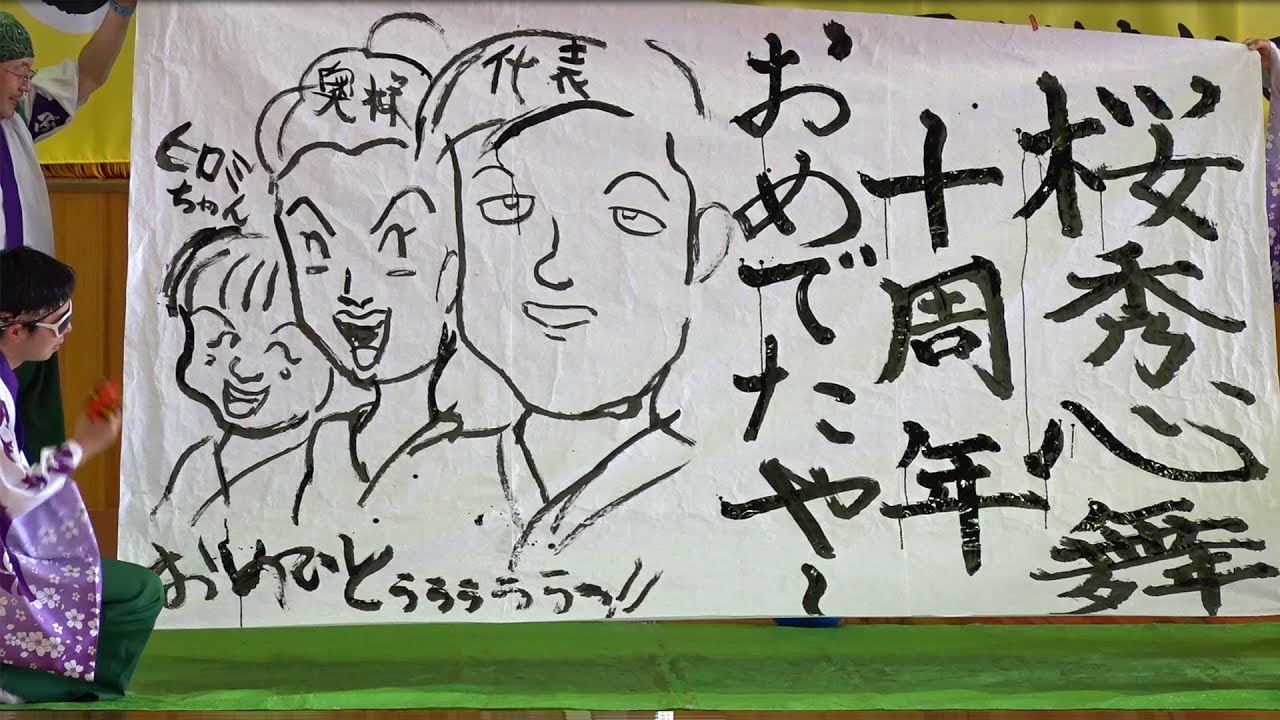 桜秀心舞
十周年
おめでたや〜
代表
奥様
ヒロミ
ちゃん
おめでとぅぅぅぅぅっ!!